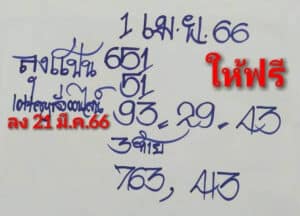 1 เม.ย.66
ลงแป้น 651
51
ให้ฟรี
93-29-43
ลง 21 มี.ค.66
3ท้าย
763, 413